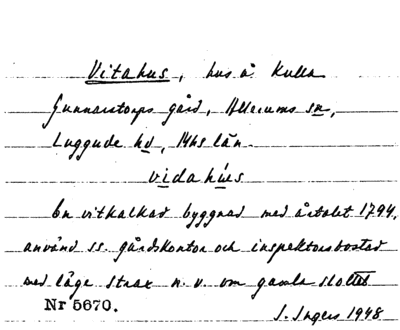 Vitahus, hus å Kulla
Gunnarstorps gård, Allerums sn,
Luggude hd, Mhs län.
vidahús
En vitkalkad byggnad med årtalet 1794,
använd ss. gårdskontor och inspektorsbostad
med läge strax n. v. om gamla slottet
Nr 5670.
I. Ingers 1948